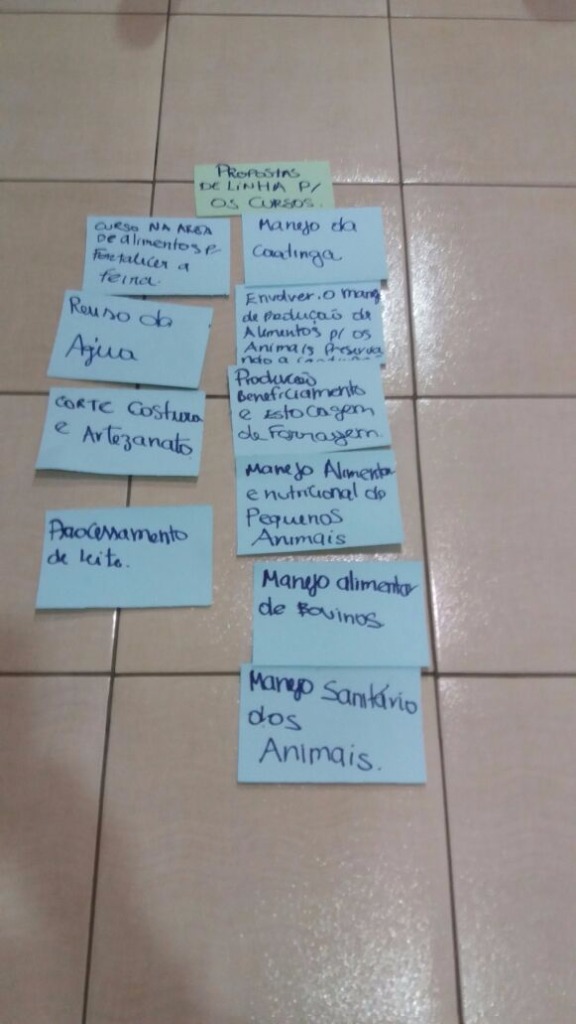 PROPOSTAS
DE LINHA P/
OS CURSOS.
CURSO NA AREA
De alimentos p/
Fortalicer a
feira.
Reuso da
Agua
CORTE Costura
e Artezanato
Processamento
de leite.
Manejo da
Caatinga
Envolver o
de produção de
Alimentos p/ os
Animais Preserva
ndo a
Produção
Beneficiamento
e estocagem
de Forragem.
Manejo Alimentar
e nutricional de
Pequenos
Animais
Manejo alimentar
de Bovinos
Manejo Sanitário
dos
Animais.